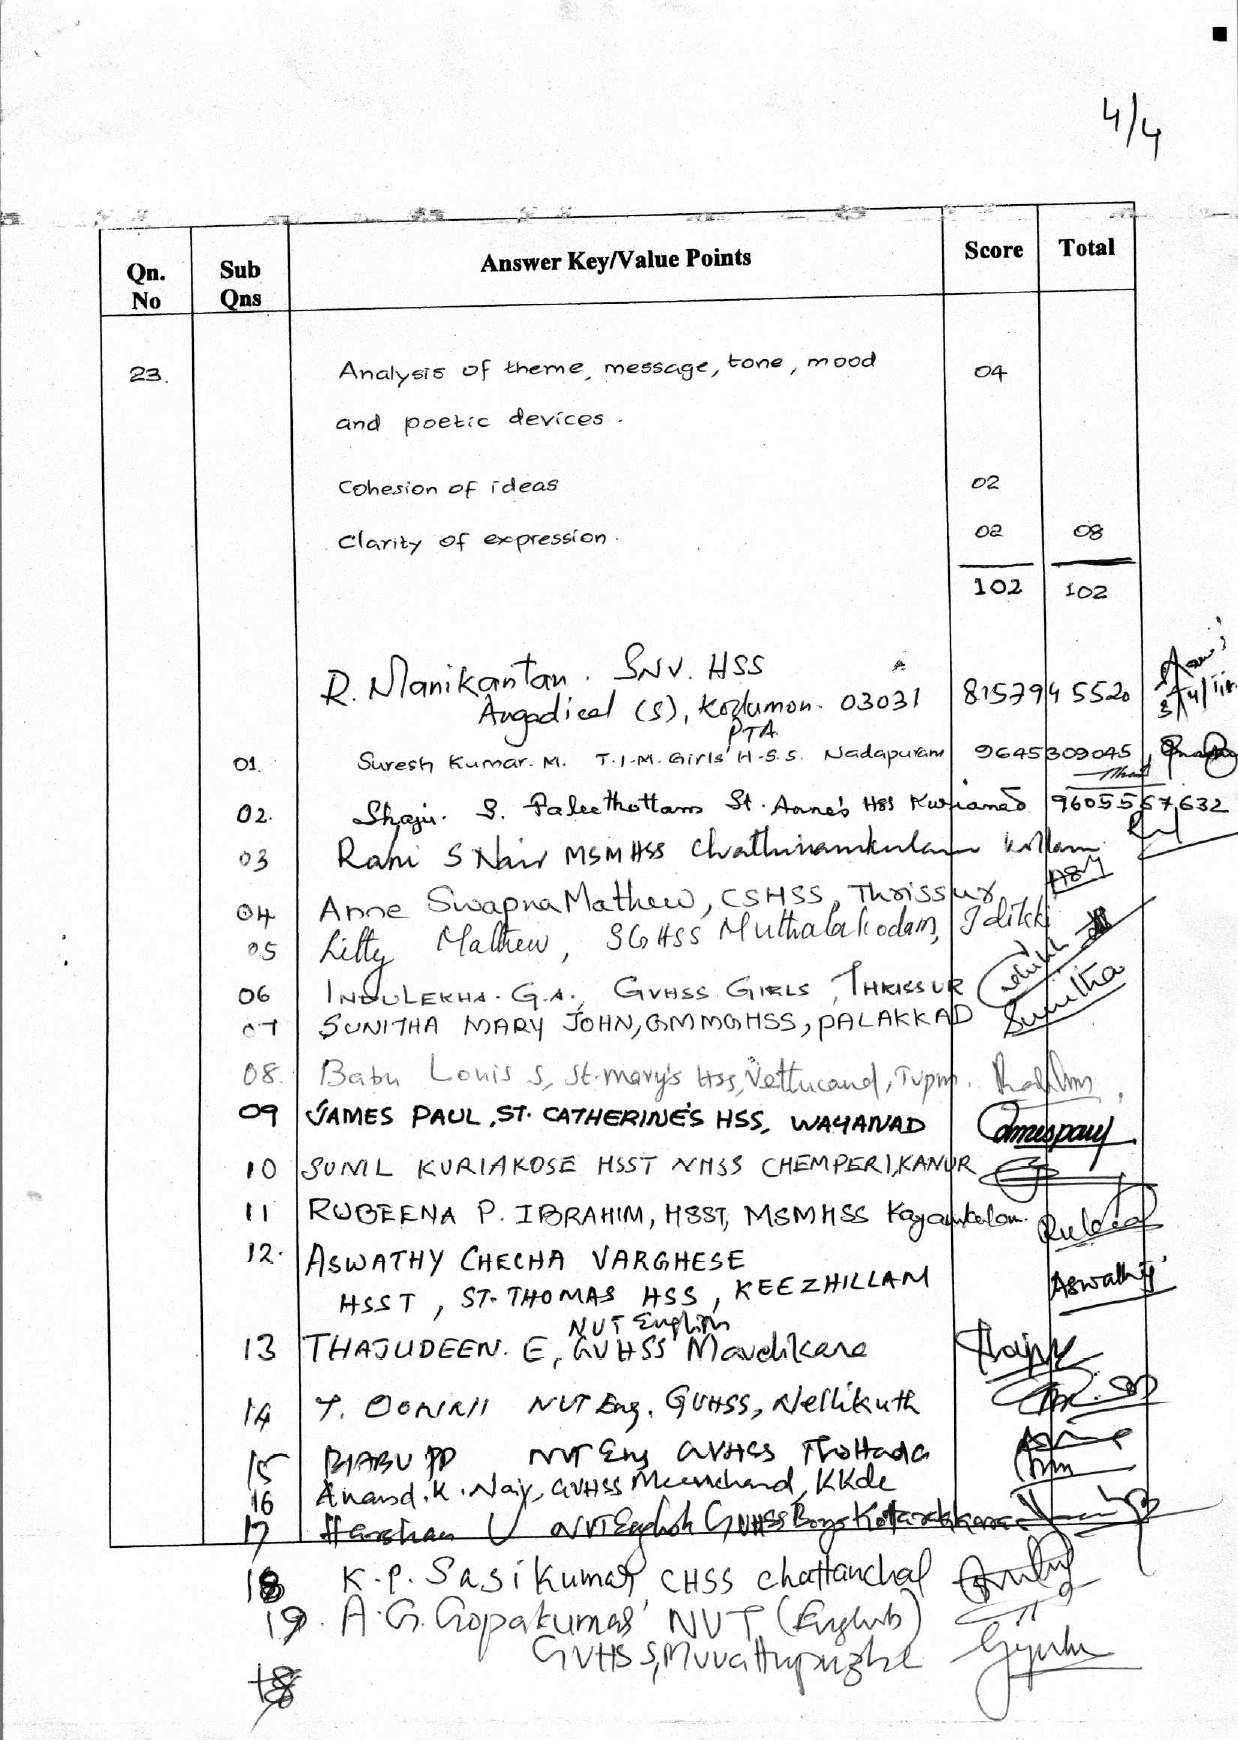 4/4
Qn. No Sub Qns Answer Key/Value Points Score Total
23. Analysis of theme, message, tone, mood 04
and poetic devices.
Cohesion of ideas 02
Clarity of expression. 02 08
102 102
R. Manikantan. SNV. HSS
Angadical (S), Kodumon. 03031 8157945520
PTA
01. Suresh Kumar. M. T.I.M. Girls' H.S.S. Nadapuram 9645309045
02. Shaju. S. St. Anne's HSS 9605567632
03 Rani S Nair MSMHSS Chathinamkulam Kollam
04 Anne Swapna Mathew, CSHSS, Thrissur ASM
05 Litty Mathew, SGHSS Muthalakodam, Idikki
06 INDULEKHA. G.A., GVHSS GIRLS, THRISSUR
07 SUNITHA MARY JOHN, GMMGHSS, PALAKKAD Sunitha
08. Babu Louis S, St. Mary's Hss, Vettucaud, Tvpm.
09 JAMES PAUL, ST. CATHERINE'S HSS, WAYANAD Jamespaul
10 SUNIL KURIAKOSE HSST NHSS CHEMPERI, KANUR
11 RUBEENA P. IBRAHIM, HSST, MSMHSS Kayamkulam.
12. ASWATHY CHECHA VARGHESE
HSST, ST. THOMAS HSS, KEEZHILLAM Aswathy
NVT English
13 THAJUDEEN. E, GVHSS Mavelikara
14 NVT Eng. GVHSS, Nellikuth
15 BIABU PP NVT Eng GVHSS Thottada
16 Anand. K. Nair, GVHSS Meenchand, KKde
17 Harshan U NVT English GVHSS Boys Kotarakkara
18 K.P. Sasikumar CHSS Chattanchal
19. A.G. Gopakumar NVT (English)
GVHSS, Muvattupuzha
18